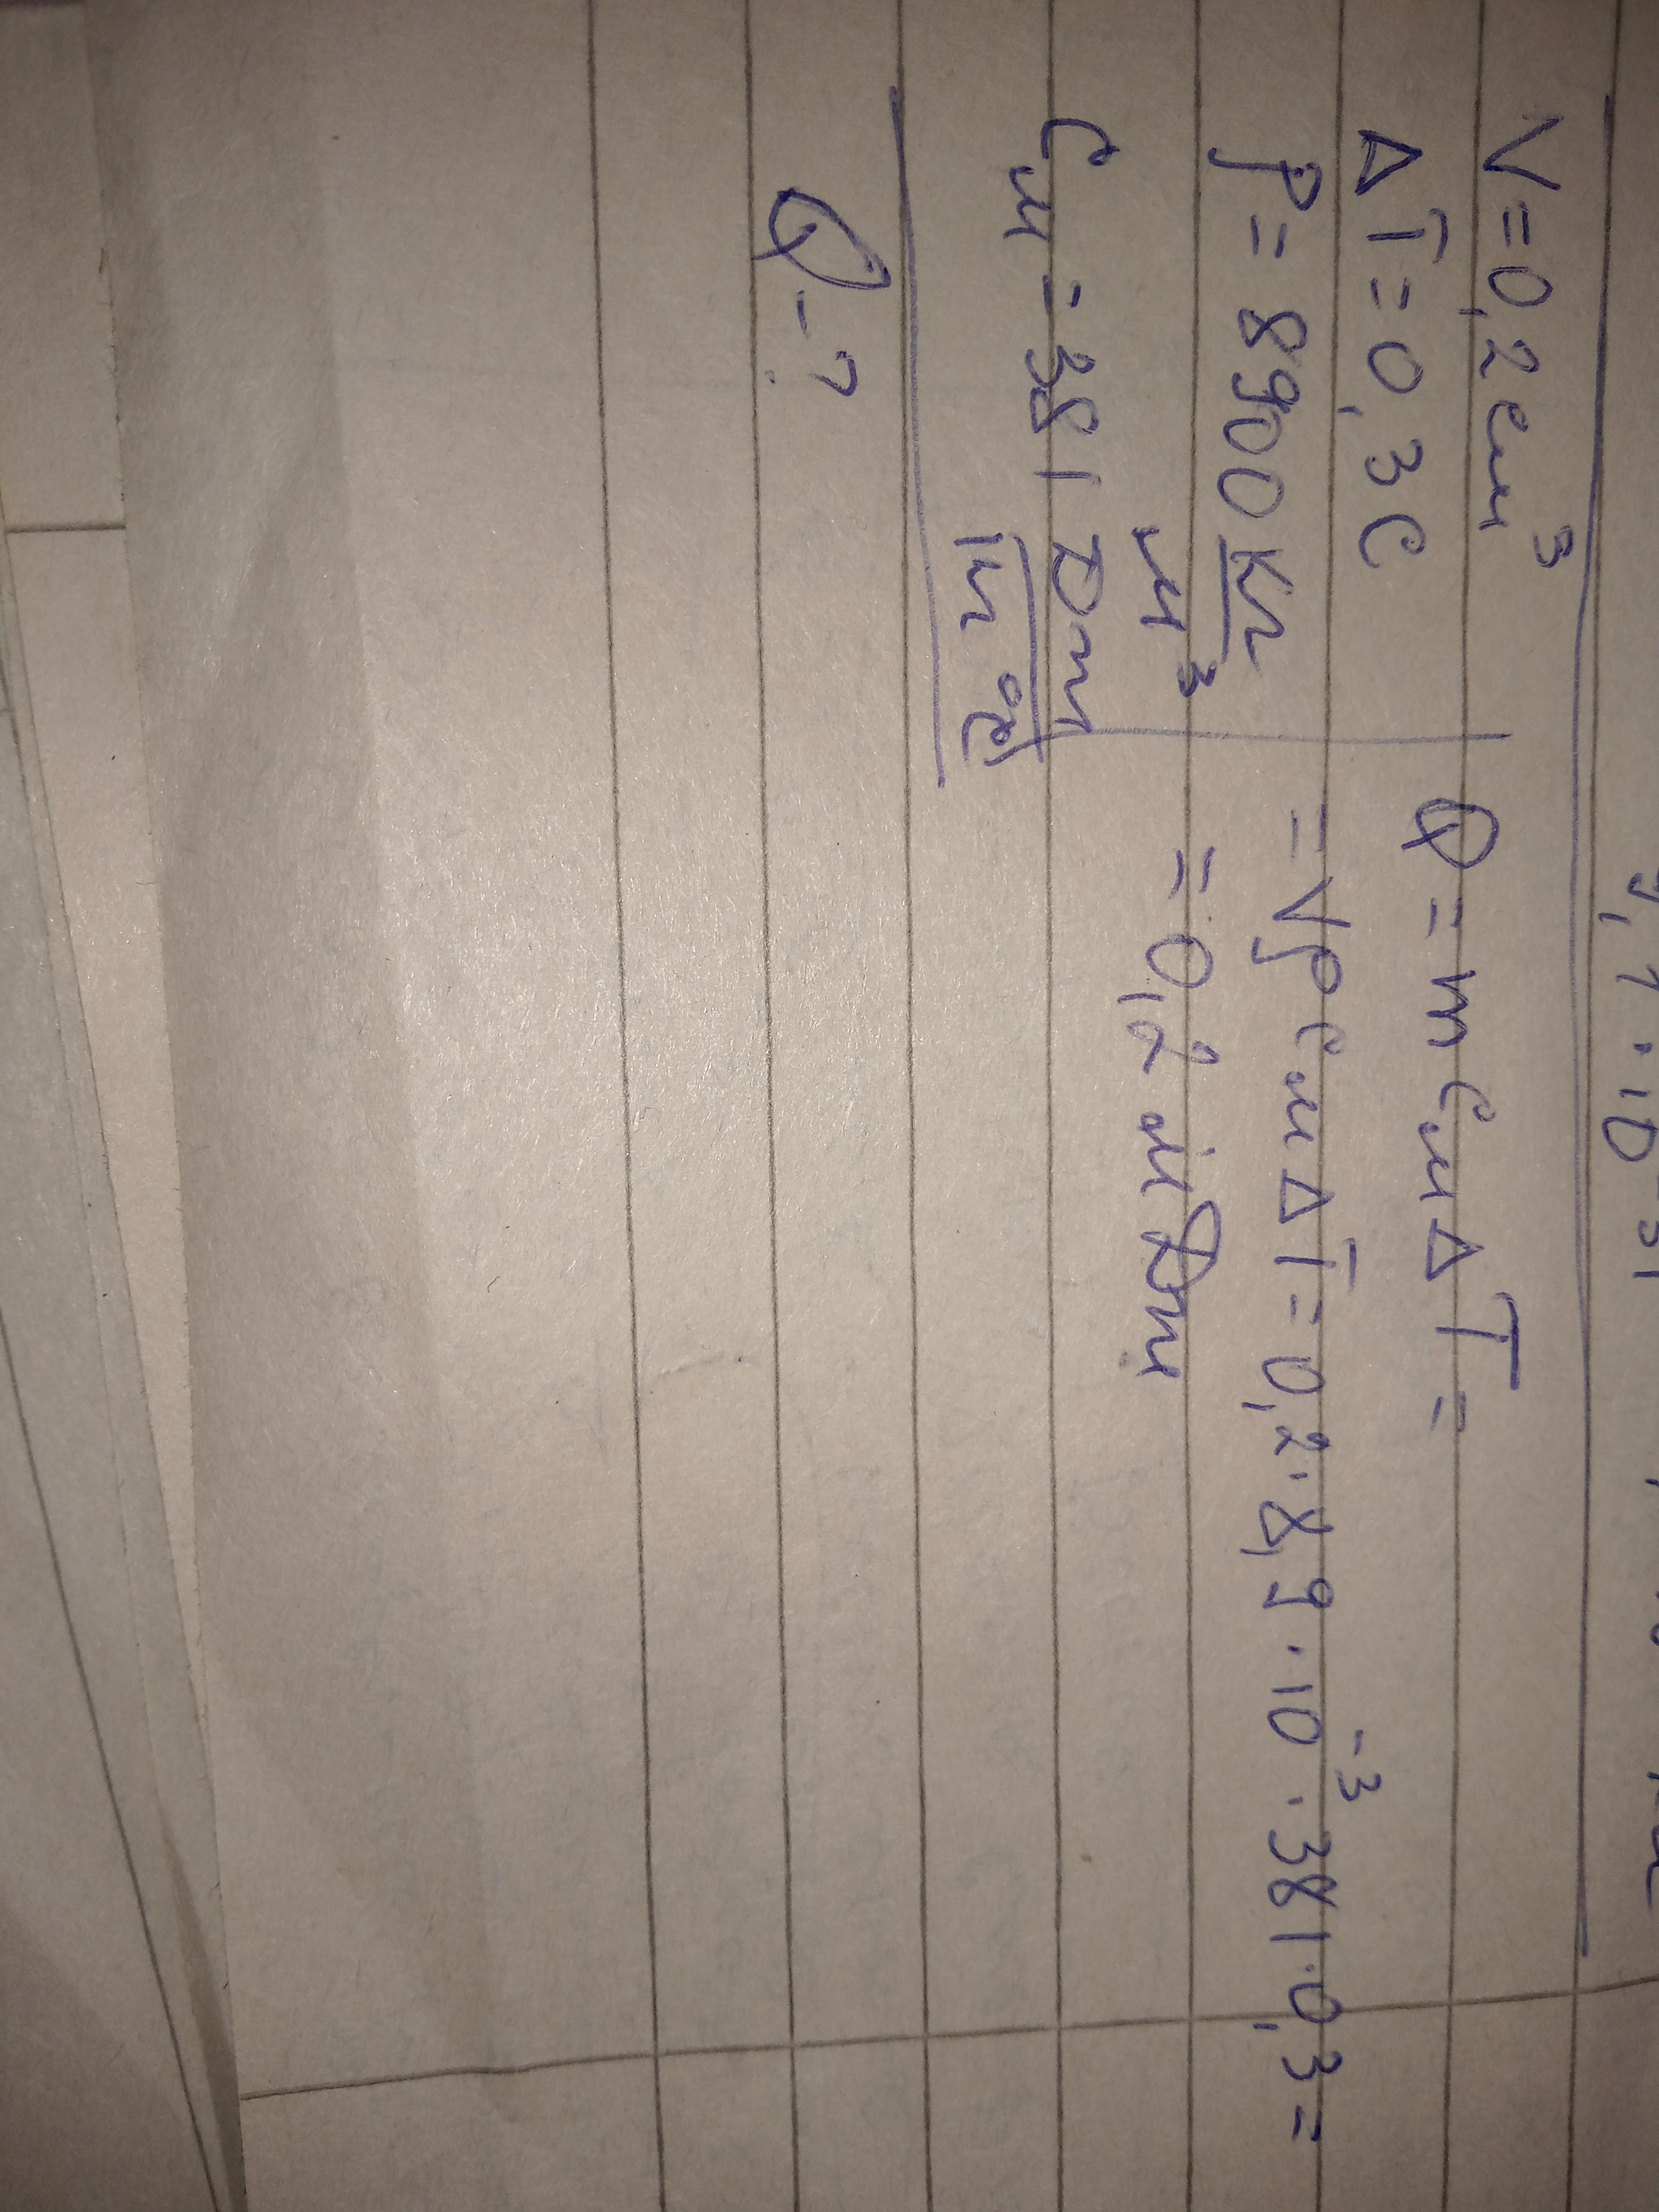 9,1 · 10⁻³¹
V = 0,2 см³
ΔT = 0,3 C
ρ = 8900 кг/м³
Cм = 381 Дж/кг °C
Q - ?
Q = m Cм ΔT =
= Vρ Cм ΔT = 0,2 · 8,9 · 10⁻³ · 381 · 0,3 =
= 0,2 Дж